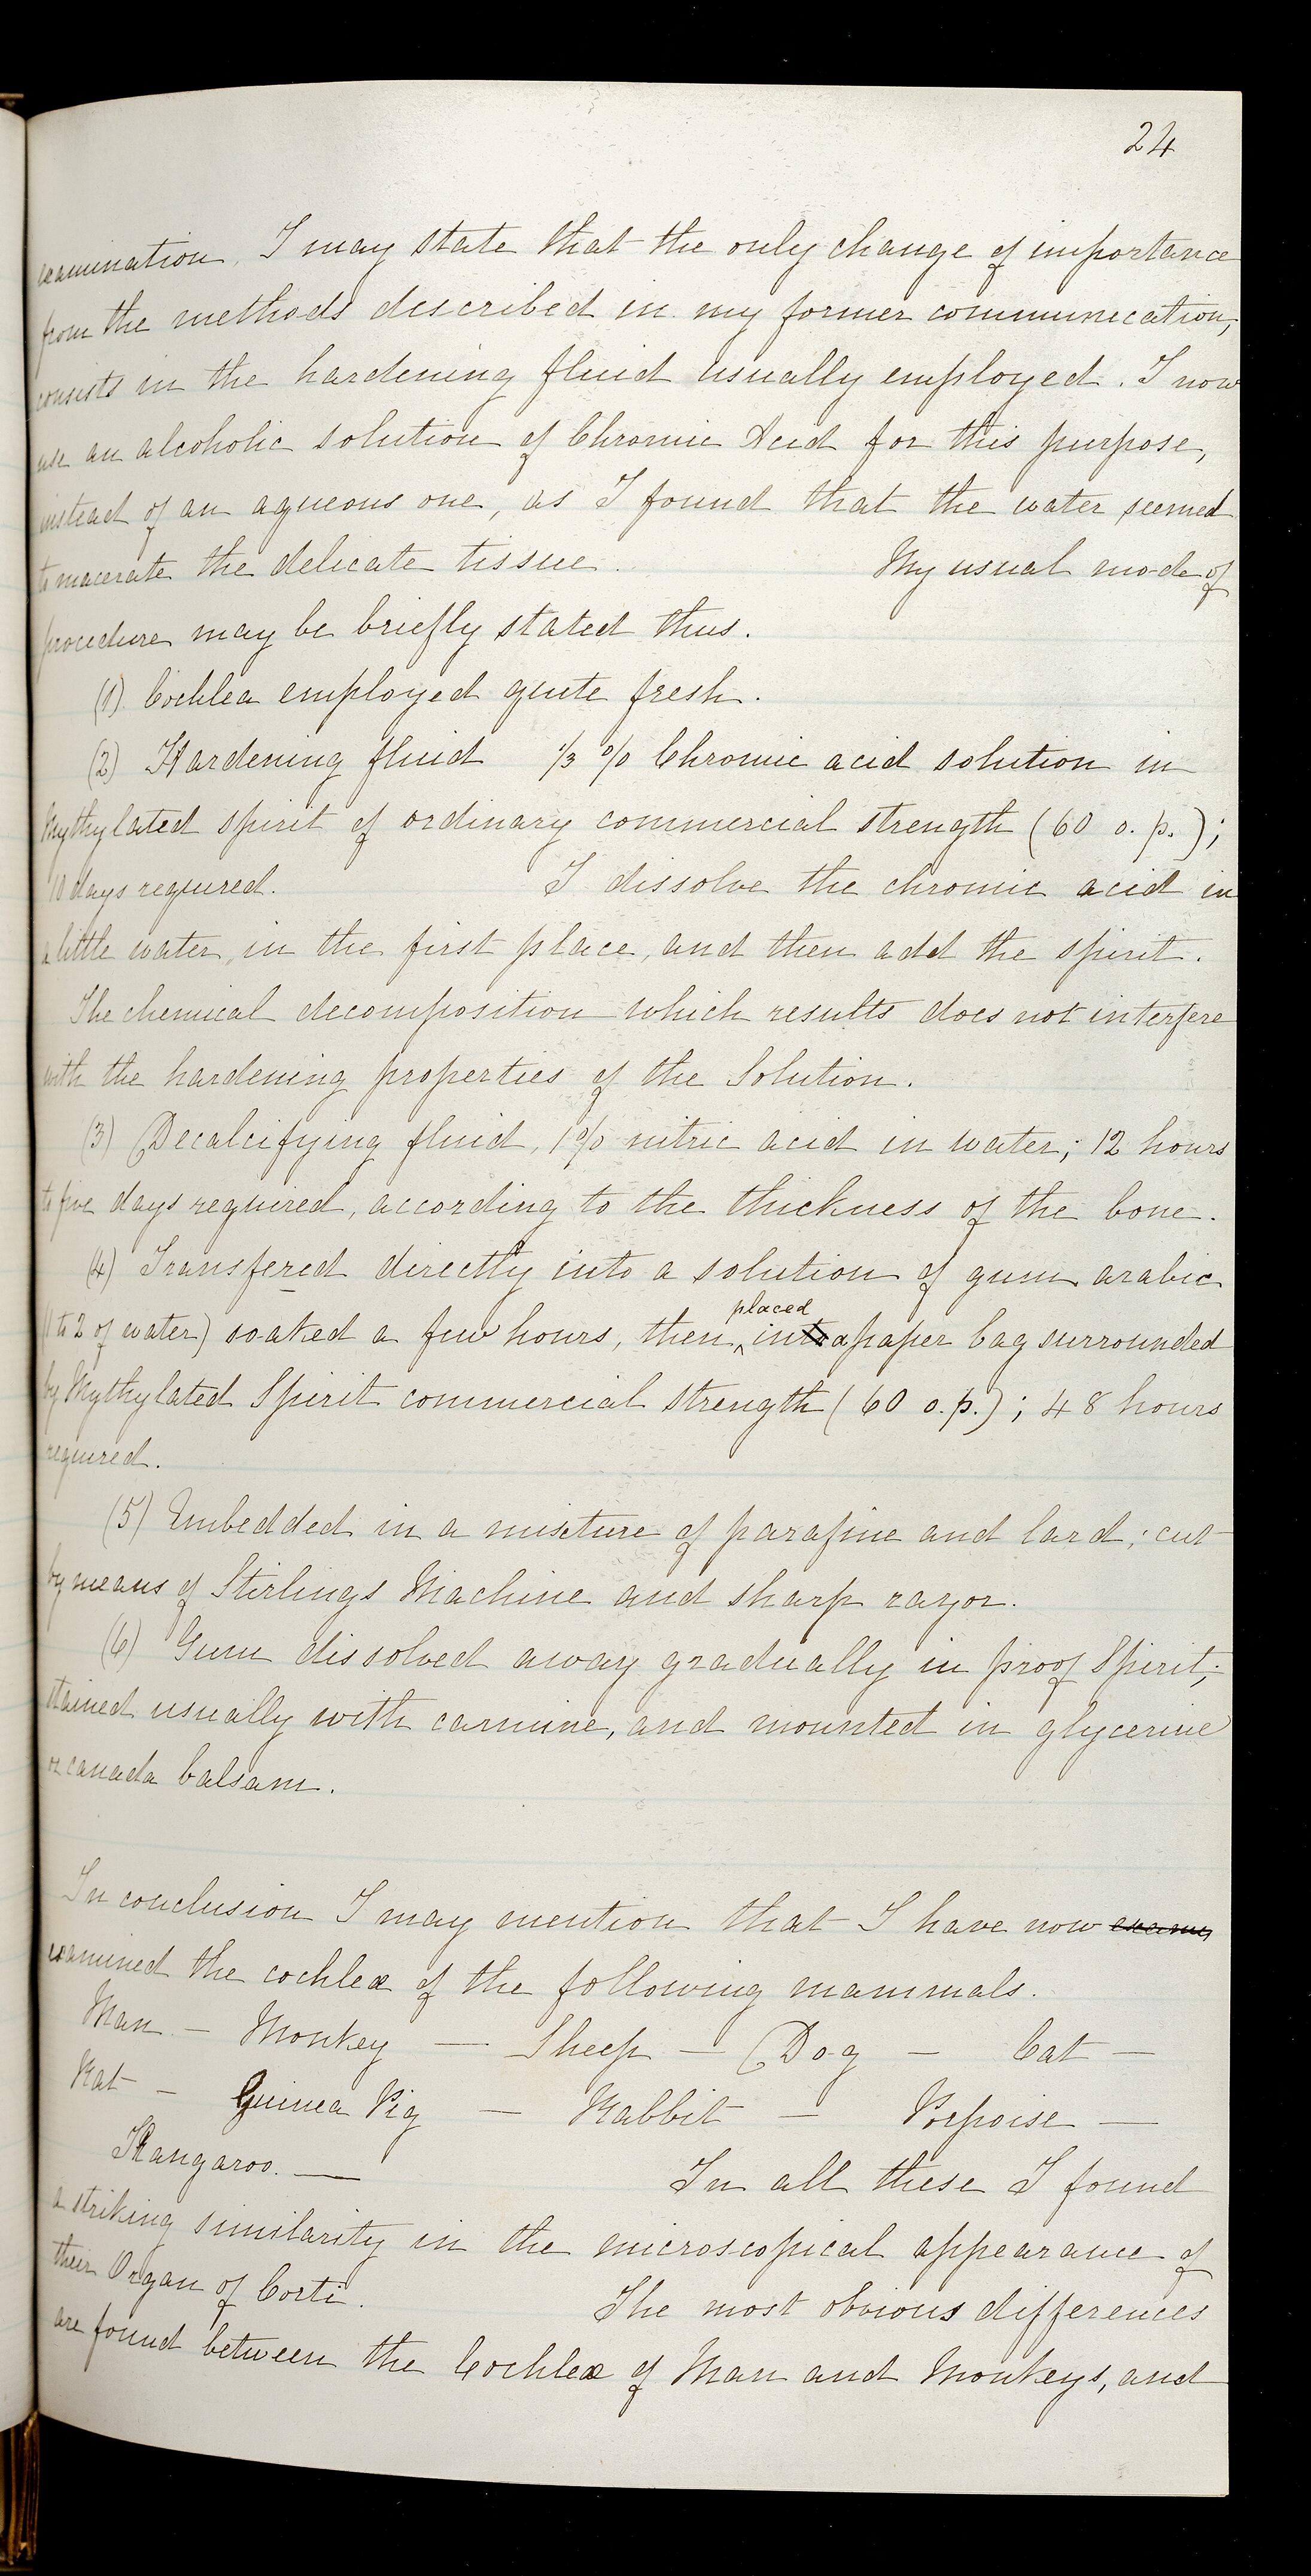 24
examination. I may state that the only change of importance
from the methods described in my former communication,
consists in the hardening fluid usually employed. I now
use an alcoholic solution of Chromic Acid for this purpose,
instead of an aqueous one, as I found that the water seemed
to macerate the delicate tissue. My usual mode of
procedure may be briefly stated thus.
(1) Cochlea employed quite fresh.
(2) Hardening fluid 1/3 % Chromic acid solution in
Mythylated spirit of ordinary commercial strength (60 o. p.);
10 days required. I dissolve the chromic acid in
a little water, in the first place, and then add the spirit.
The chemical decomposition which results does not interfere
with the hardening properties of the Solution.
(3) Decalcifying fluid, 1% nitric acid in water; 12 hours
to five days required, according to the thickness of the bone.
(4) Transfered directly into a solution of gum arabic
(1 to 2 of water) soaked a few hours, then placed in a paper bag surrounded
by Mythylated Spirit commercial strength (60 o.p.); 48 hours
required.
(5) Embedded in a mixture of parafine and lard; cut
by means of Stirlings Machine and sharp razor.
(6) Gum dissolved away gradually in proof Spirit;
stained usually with carmine, and mounted in glycerine
or canada balsam.
In conclusion I may mention that I have now exame
examined the cochleæ of the following mammals.
Man - Monkey — Sheep — Dog — Cat —
Rat — Guinea Pig — Rabbit — Porpoise —
Kangaroo. — In all these I found
a striking similarity in the microscopical appearance of
their Organ of Corti. The most obvious differences
are found between the Cochleæ of Man and Monkeys, and